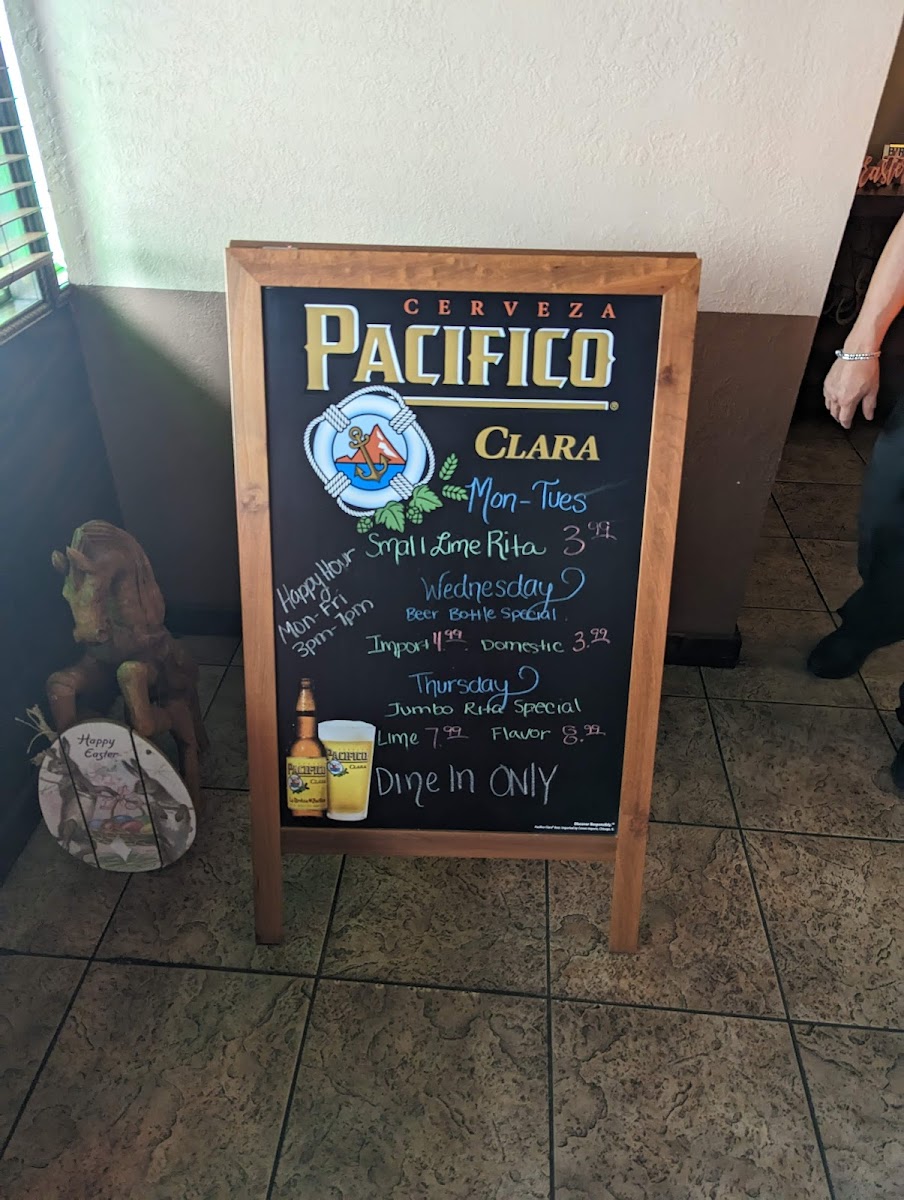 CERVEZA
PACIFICO
CLARA
Mon-Tues
Small Lime Rita 3.99
Happy Hour
Mon-Fri
3pm-7pm
Wednesday
Beer Bottle Special
Import 4.99 Domestic 3.99
Thursday
Jumbo Rita Special
Lime 7.99 Flavor 8.99
Dine In ONLY
PACIFICO
CLARA
PACIFICO
CLARA
Discover Responsibly.™
Happy
Easter
Easter